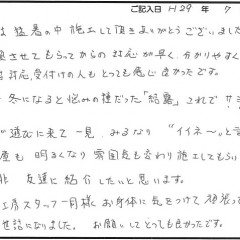 ご記入日 H29年 7
は猛暑の中施工して頂きありがとうございました
させてもらってからの対応が早く、分かりやすく
対応、受付けの人もとっても感じ良かったです。
冬になると悩みの種だった「結露」これで
遊びに来て一見みるなり "イイネ〜" と言
も明るくなり雰囲気も変わり施工してもらい
非友達に紹介したいと思います。
工房スタッフ一同様お身体に気をつけて頑張って
世話になりました。お願いしてとっても良かったです。